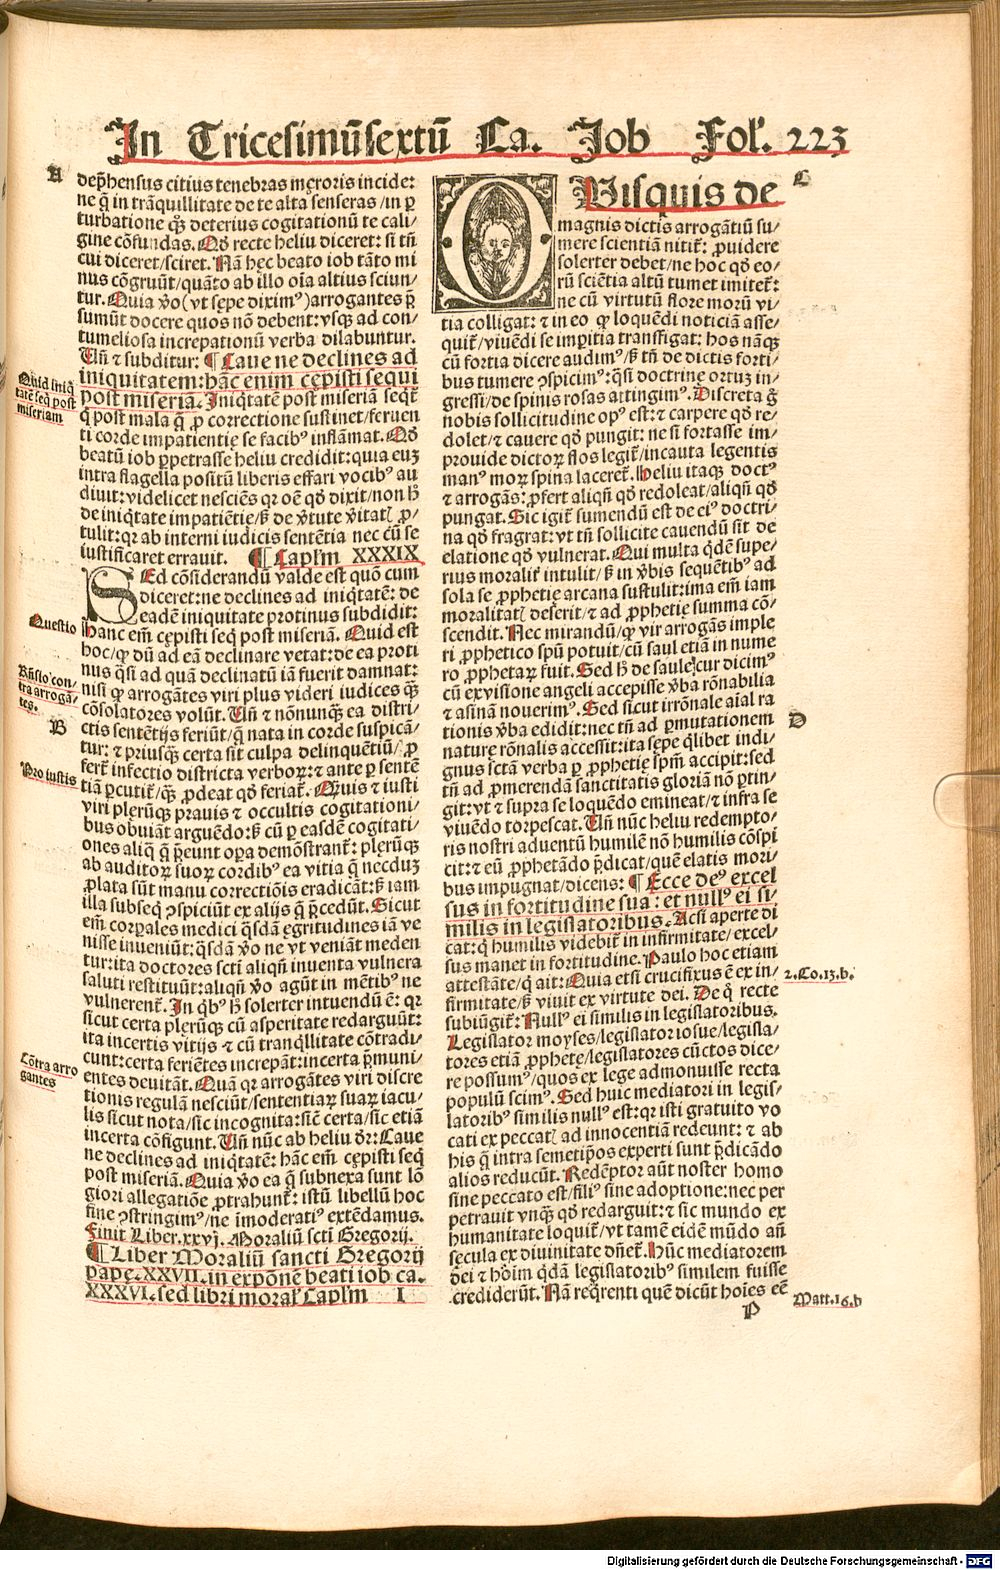 In Tricesimūsextū Ca. Job Fol'. 223
A
dep̄hensus citius tenebras męroris incide:
ne q̄ in trāquillitate de te alta senseras/in ꝑ
turbatione qͥꝫ deterius cogitationū te cali/
gine cōfundas. Qđ recte heliu diceret: si tn̄
cui diceret/sciret. Nā hęc beato iob tāto mi
nus cōgruūt/quāto ab illo oīa altius sciun/
tur. Quia v̄o (vt sępe diximꝰ) arrogantes p̄
sumūt docere quos nō debent: vsqꝫ ad con/
tumeliosa increpationū verba dilabuntur.
Uñ ⁊ subditur: ¶ Caue ne declines ad
iniquitatem: hāc enim cępisti sequi
post miseriā. Iniq̇tatē post miseriā seqt̄
q̇ post mala q̄ ꝓ correctione sustinet/feruen
ti corde impatientię se facibꝰ inflāmat. Qđ
beatū iob ꝑpetrasse heliu credidit: quia euꝫ
intra flagella positū liberis effari vocibꝰ au
diuit: videlicet nesciēs qꝛ oē qđ dixit/non h̄
de iniq̇tate impatiētie/ß de v̄tute v̄itatꝭ ꝓ/
tulit: qꝛ ab interni iudicis sentētia nec cū se
iustificaret errauit. ¶ Caplm XXXIX
SEd cōsiderandū valde est quō cum
diceret: ne declines ad iniq̇tatē: de
eadē iniquitate protinus subdidit:
Hanc em̄ cępisti seq̇ post miseriā. Quid est
hoc/ꝙ dū ad eā declinare vetat: de ea proti
nus q̄si ad quā declinatū iā fuerit damnat:
nisi ꝙ arrogātes viri plus videri iudices qͣꝫ
cōsolatores volūt. Uñ ⁊ nōnunqͣꝫ ea distri/
ctis sentētijs feriūt/q̄ nata in corde suspicā/
tur: ⁊ priusqͣꝫ certa sit culpa delinquētiū/ꝓ
fert̄ infectio districta verboꝝ: ⁊ ante ꝑ sentē
tiā ꝑcutit̄/qͣꝫ ꝓdeat qđ feriat̄. Quis ⁊ iusti
viri plerūqꝫ prauis ⁊ occultis cogitationi/
bus obuiāt arguēdo: ß cū ꝑ easdē cogitati/
ones aliq̄ q̄ p̄eunt oꝑa demōstrant̄: plerūqꝫ
ab auditoꝝ suoꝝ cordibꝰ ea vitia q̄ necduꝫ
ꝓlata sūt manu correctiōis eradicāt: ß iam
illa subseq̇ ꝯspiciūt ex alijs q̄ p̄cedūt. Sicut
em̄ corꝑales medici q̄sdā ęgritudines iā ve
nisse inueniūt: q̄sdā v̄o ne vt veniāt meden
tur: ita doctores scti aliqn̄ inuenta vulnera
saluti restituūt: aliqn̄ v̄o agūt in mētibꝰ ne
vulnerent̄. In q̇bꝰ h̄ solerter intuendū ē: qꝛ
sicut certa plerūqꝫ cū asperitate redarguūt:
ita incertis vitijs ⁊ cū tranq̇llitate cōtradi/
cunt: certa feriētes increpāt: incerta p̄muni/
entes deuitāt. Quā qꝛ arrogātes viri discre
tionis regulā nesciūt/sententiaꝝ suaꝝ iacu/
lis sicut nota/sic incognita: sic certa/sic etiā
incerta cōfigunt. Uñ nūc ab heliu dr̄: Caue
ne declines ad iniq̇tatē: hāc em̄ cępisti seq̇
post miseriā. Quia v̄o ea q̄ subnexa sunt lō
giori allegatiōe ꝓtrahunt̄: istū libellū hoc
fine ꝯstringimꝰ/ne īmoderatiꝰ extēdamus.
Finit Liber .xxvj. Moraliū scti Gregorij.
¶ Liber Moraliū sancti Gregorij
papę. XXVII. in expōne beati iob ca.
XXXVI. sed libri moral' Caplm I
Quid iniq̇
tatē seq̇ post
miseriam
Questio
Rn̄sio con/
tra arrogā/
tes.
B
Pro iustis
Cōtra arro
gantes
C
QUisquis de
magnis dictis arrogātiū su/
mere scientiā nitit̄: ꝓuidere
solerter debet/ne hoc qđ eo/
rū sciētia altū tumet imitet̄:
ne cū virtutū flore morū vi/
tia colligat: ⁊ in eo ꝙ loquēdi noticiā asse/
quit̄/viuēdi se imꝑitia transfigat: hos nāqꝫ
cū fortia dicere audimꝰ/ß tn̄ de dictis forti/
bus tumere ꝯspicimꝰ: q̄si doctrinę ortuꝫ in/
gressi/de spinis rosas attingimꝰ. Discreta g̊
nobis sollicitudine opꝰ est: ⁊ carpere qđ re/
dolet/⁊ cauere qđ pungit: ne si fortasse im/
prouide dictoꝝ flos legit̄/incauta legentis
manꝰ moꝝ spina laceret̄. Heliu itaqꝫ doctꝰ
⁊ arrogās: ꝓfert aliqn̄ qđ redoleat/aliqn̄ qđ
pungat. Sic igit̄ sumendū est de eiꝰ doctri/
na qđ fragrat: vt tn̄ sollicite cauendū sit de
elatione qđ vulnerat. Qui multa q̇dē supe/
rius moralit̄ intulit/ß in v̄bis sequētibꝰ ad
sola se ꝓphetię arcana sustulit: ima em̄ iam
moralitatꝭ deserit/⁊ ad ꝓphetię summa cō/
scendit. Nec mirandū/ꝙ vir arrogās imple
ri ꝓphetico spū potuit/cū saul etiā in nume
ro ꝓphetaꝝ fuit. Sed h̄ de saule/cur dicimꝰ
cū ex visione angeli accepisse v̄ba rōnabilia
⁊ asinā nouerimꝰ. Sed sicut irrōnale aīal ra
tionis v̄ba edidit: nec tn̄ ad ꝑmutationem
nature rōnalis accessit: ita sepe q̇libet indi/
gnus sctā verba ꝑ ꝓphetię spm̄ accipit: sed
tn̄ ad ꝓmerendā sanctitatis gloriā nō ꝑtin/
git: vt ⁊ supra se loquēdo emineat/⁊ infra se
viuēdo torpescat. Uñ nūc heliu redempto/
ris nostri aduentū humilē nō humilis cōspi
cit: ⁊ eū ꝓphetādo p̄dicat/quē elatis mori/
bus impugnat/dicens: ¶ Ecce deꝰ excel
sus in fortitudine sua: et nullꝰ ei si/
milis in legislatoribus. Acsi aperte di
cat: q̇ humilis videbit̄ in infirmitate/excel/
sus manet in fortitudine. Paulo hoc etiam
attestāte/q̇ ait: Quia etsi crucifixus ē ex in/
firmitate/ß viuit ex virtute dei. De q̊ recte
subiūgit̄: Nullꝰ ei similis in legislatoribus.
Legislator moyses/legislator iosue/legisla/
tores etiā ꝓphetę/legislatores cūctos dice/
re possumꝰ/quos ex lege admonuisse recta
populū scimꝰ. Sed huic mediatori in legis/
latoribꝰ similis nullꝰ est: qꝛ isti gratuito vo
cati ex peccatꝭ ad innocentiā redeunt: ⁊ ab
his q̄ intra semetip̄os experti sunt p̄dicādo
alios reducūt. Redēptor aūt noster homo
sine peccato est/filiꝰ sine adoptione: nec per
petrauit vnqͣꝫ qđ redarguit: ⁊ sic mundo ex
humanitate loquit̄/vt tamē eidē mūdo añ
sęcula ex diuinitate dn̄et̄. Hūc mediatorem
dei ⁊ hoīm q̇dā legislatoribꝰ similem fuisse
crediderūt. Nā req̇renti quē dicūt hoīes eē
P
D
2. Co. 13. b.
Matt. 16. b
Digitalisierung gefördert durch die Deutsche Forschungsgemeinschaft - DFG